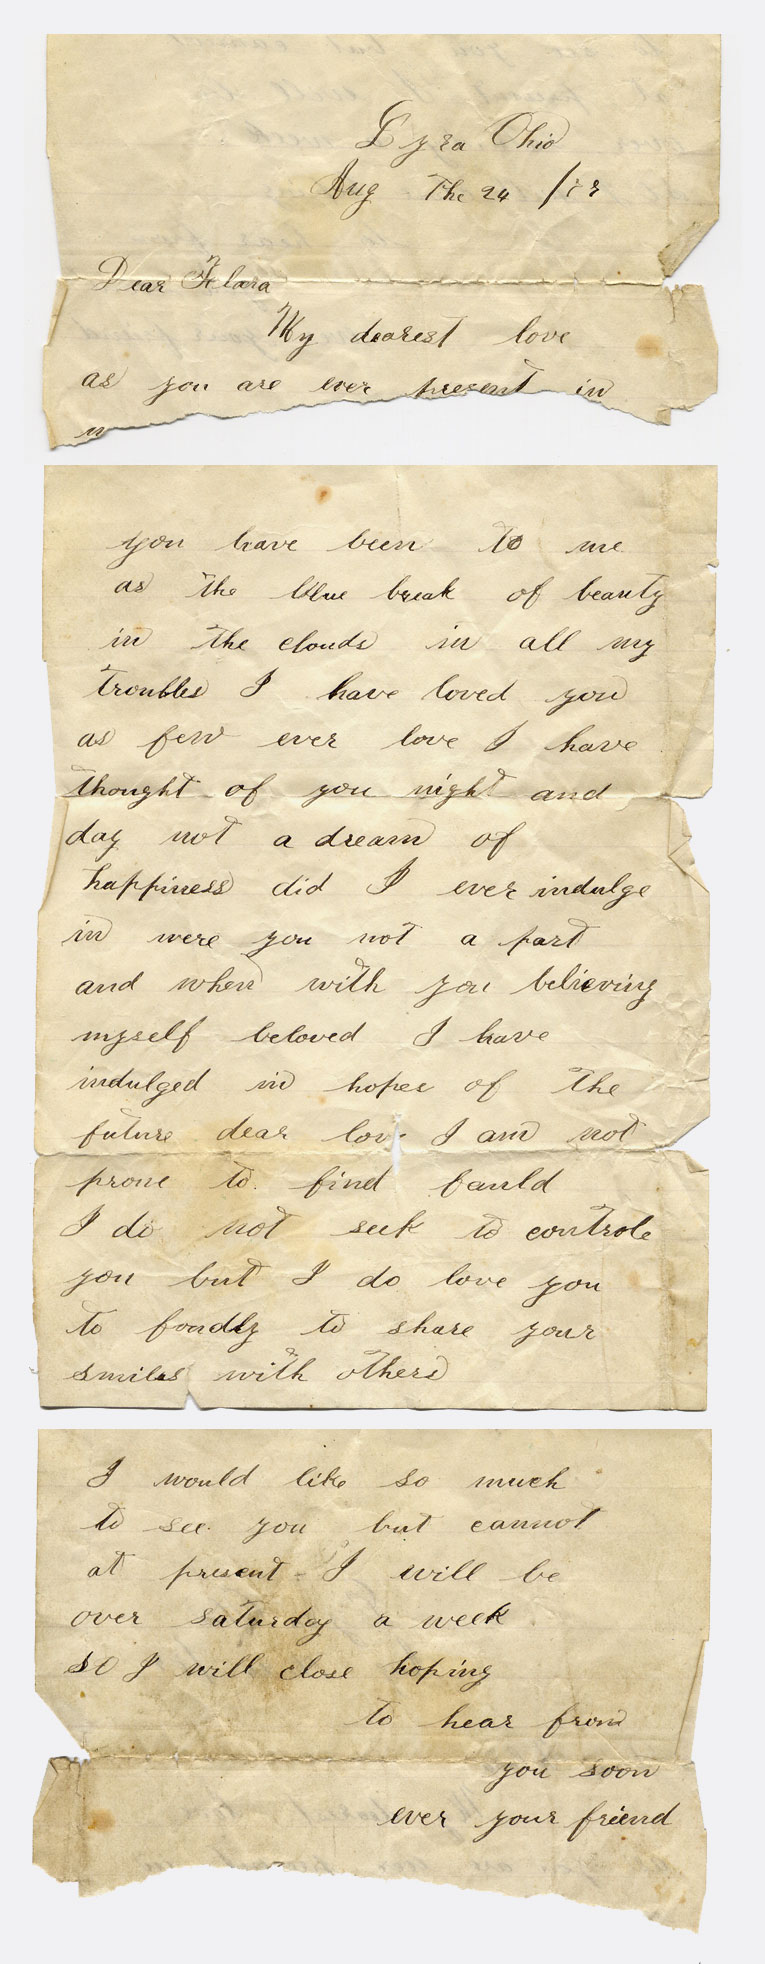 Lyra Ohio
Aug The 24
Dear Flara
My dearest love
as you are ever present in
you have been to me
as the blue break of beauty
in the clouds in all my
troubles I have loved you
as few ever love I have
thought of you night and
day not a dream of
happiness did I ever indulge
in were you not a part
and when with you believing
myself beloved I have
indulged in hopes of the
future dear love I am not
prone to find fauld
I do not seek to controle
you but I do love you
to fondly to share your
smiles with others
I would like so much
to see you but cannot
at present - I will be
over saturday a week
so I will close hoping
to hear from
you soon
ever your friend